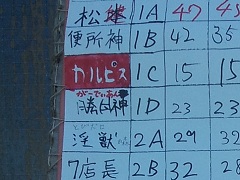 松 1A 47 45
便所神 1B 42 35
カルピス 1C 15 15
がーでぃあん
勝臼神 1D 23 23
淫獣 2A 29 32
7店長 2B 32 28